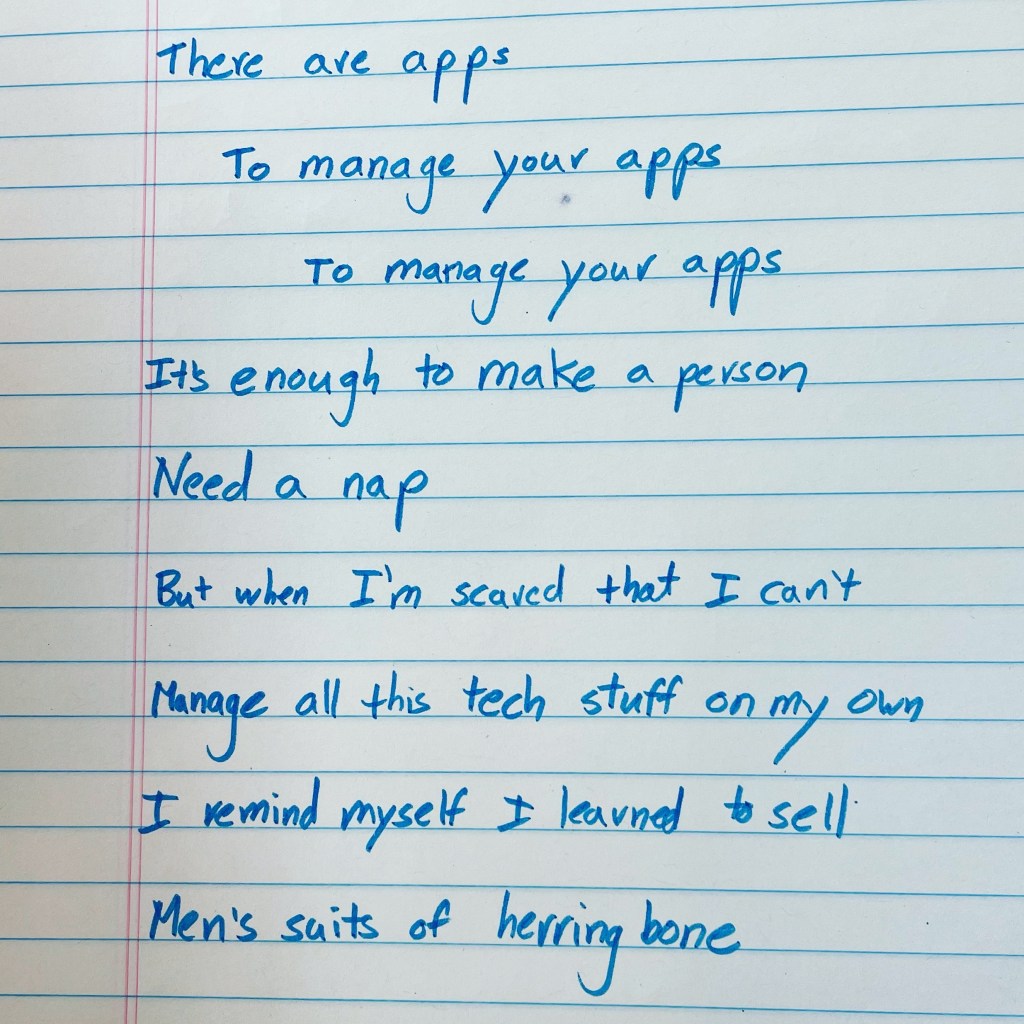 There are apps
To manage your apps
To manage your apps
It's enough to make a person
Need a nap
But when I'm scared that I can't
Manage all this tech stuff on my own
I remind myself I learned to sell
Men's suits of herring bone